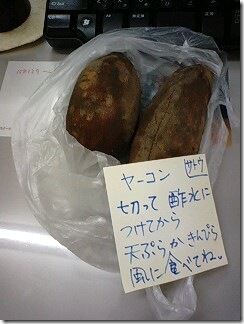 サトウ
ヤーコン
切って 酢水に
つけてから
天ぷらか きんぴら
風に食べてね。